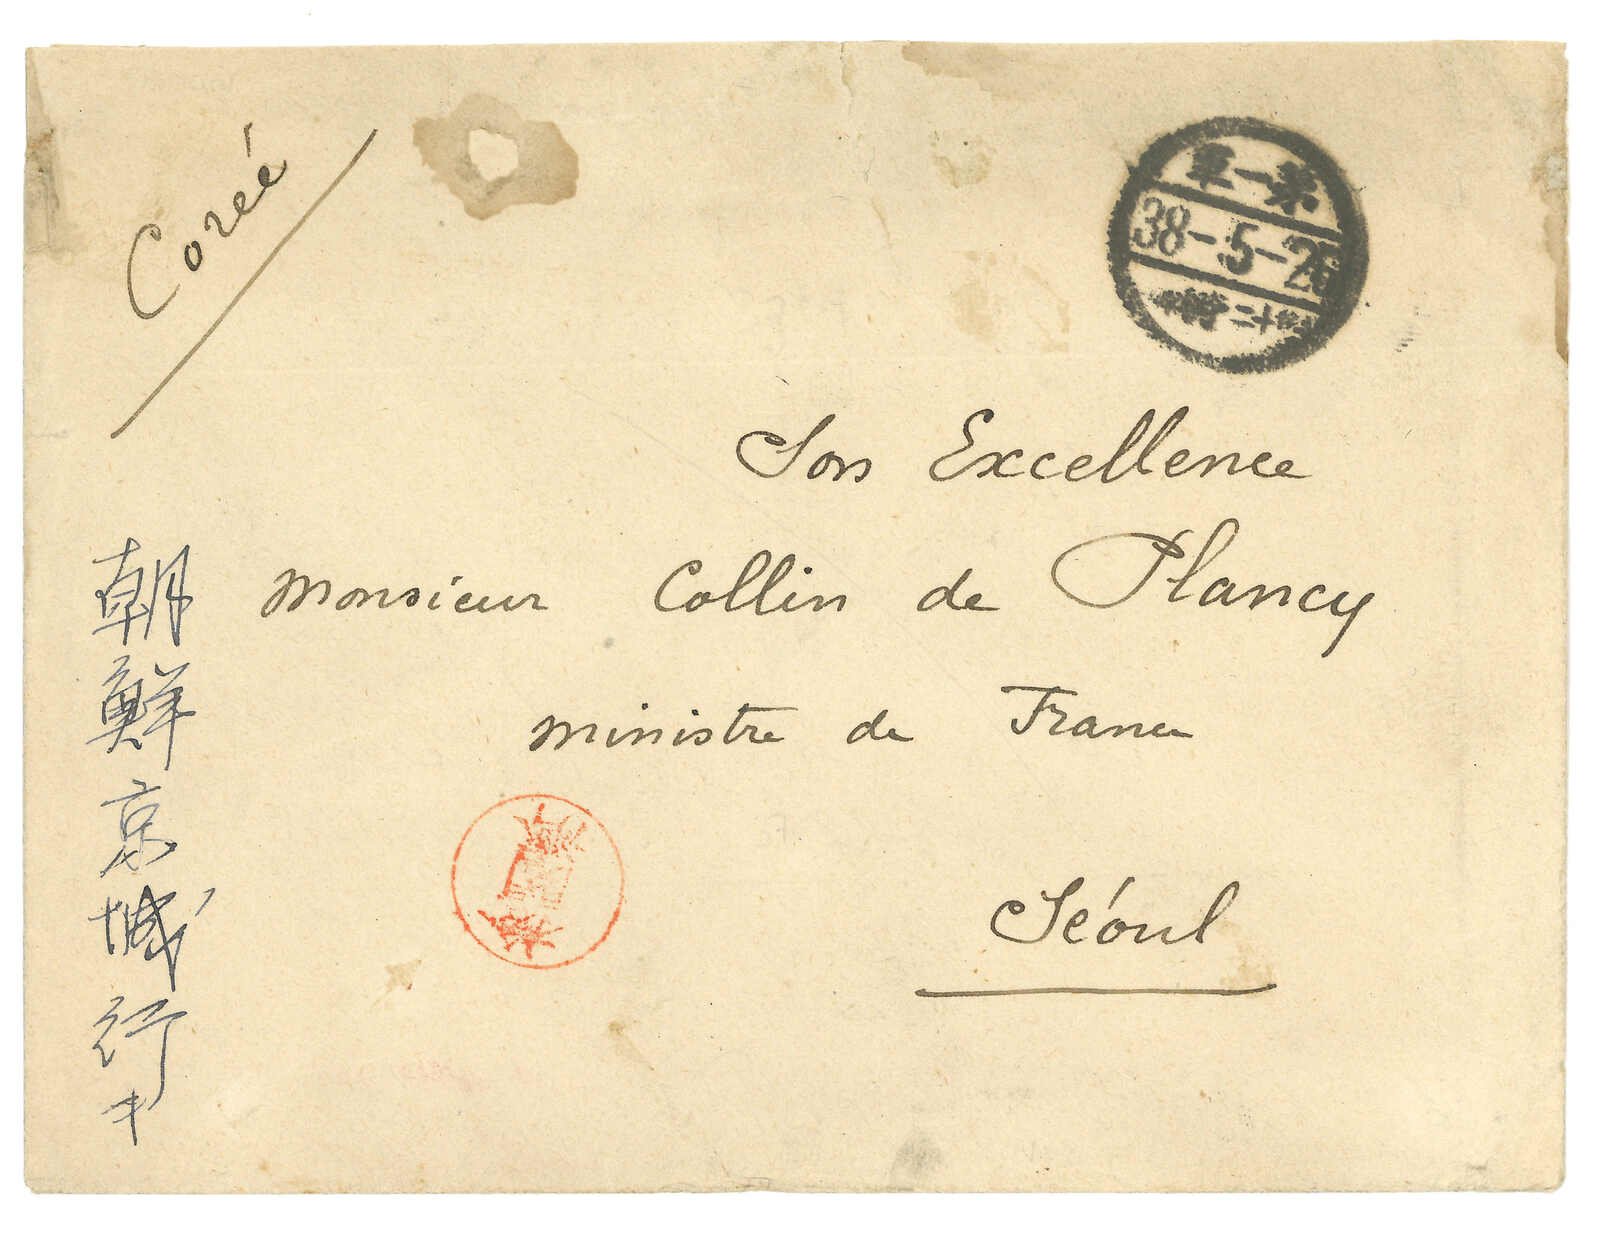 Coreé
第一軍
38-5-2
Son Excellence
Monsieur Collin de Plancy
ministre de France
Séoul
朝鮮京城行